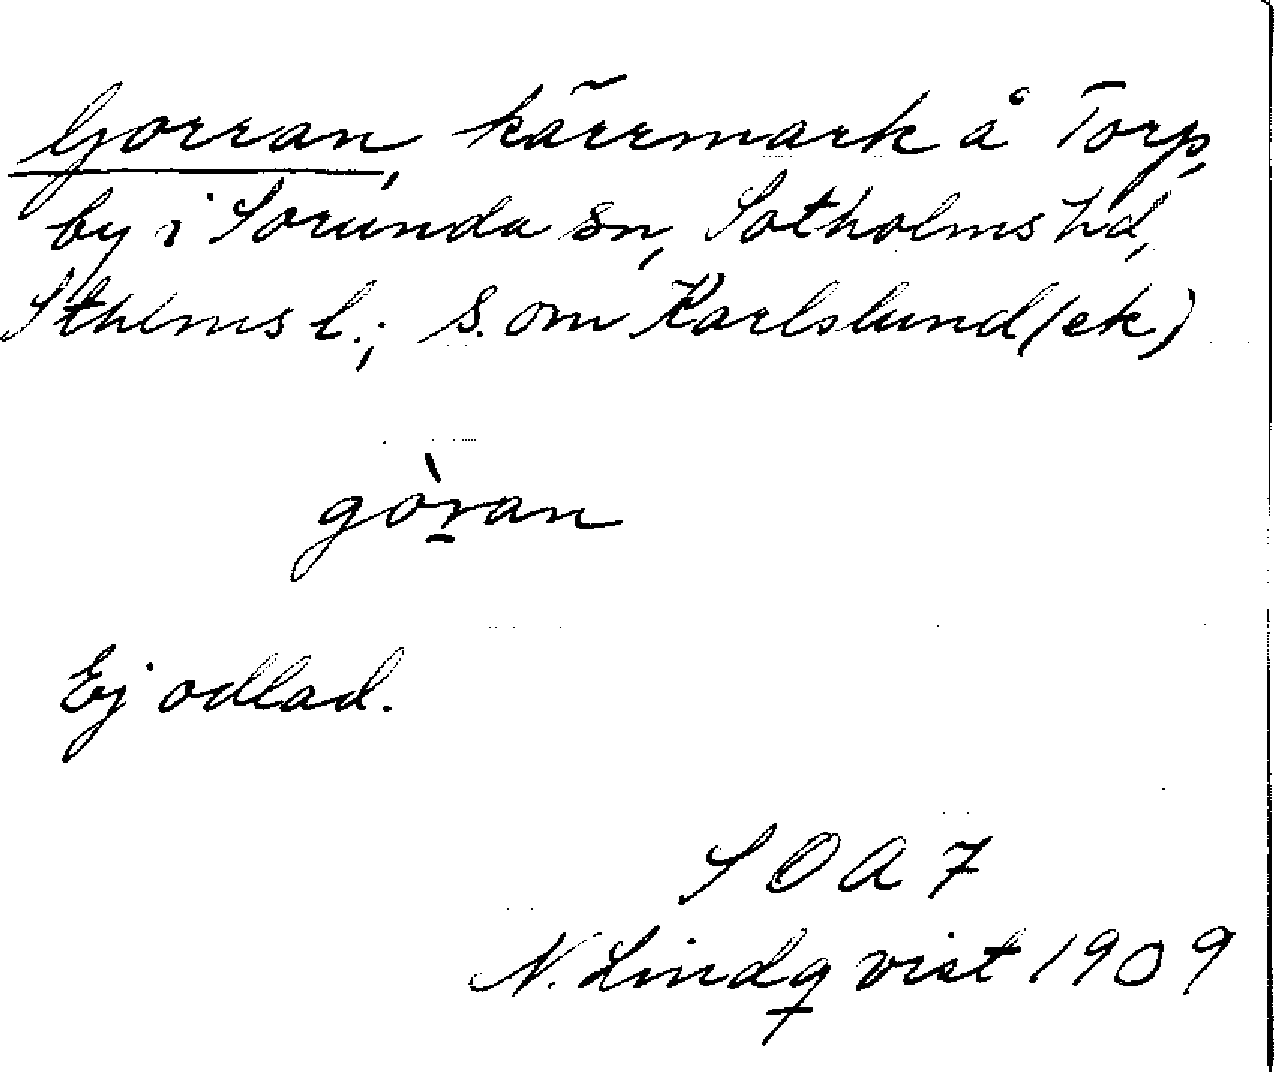 Gorran, kärrmark å Torp,
by i Sorunda sn, Sotholms hd,
Sthlms l.; S. om Karlslund (ek)
gòr̲an
Ej odlad.
SOA 7
N. Lindqvist 1909